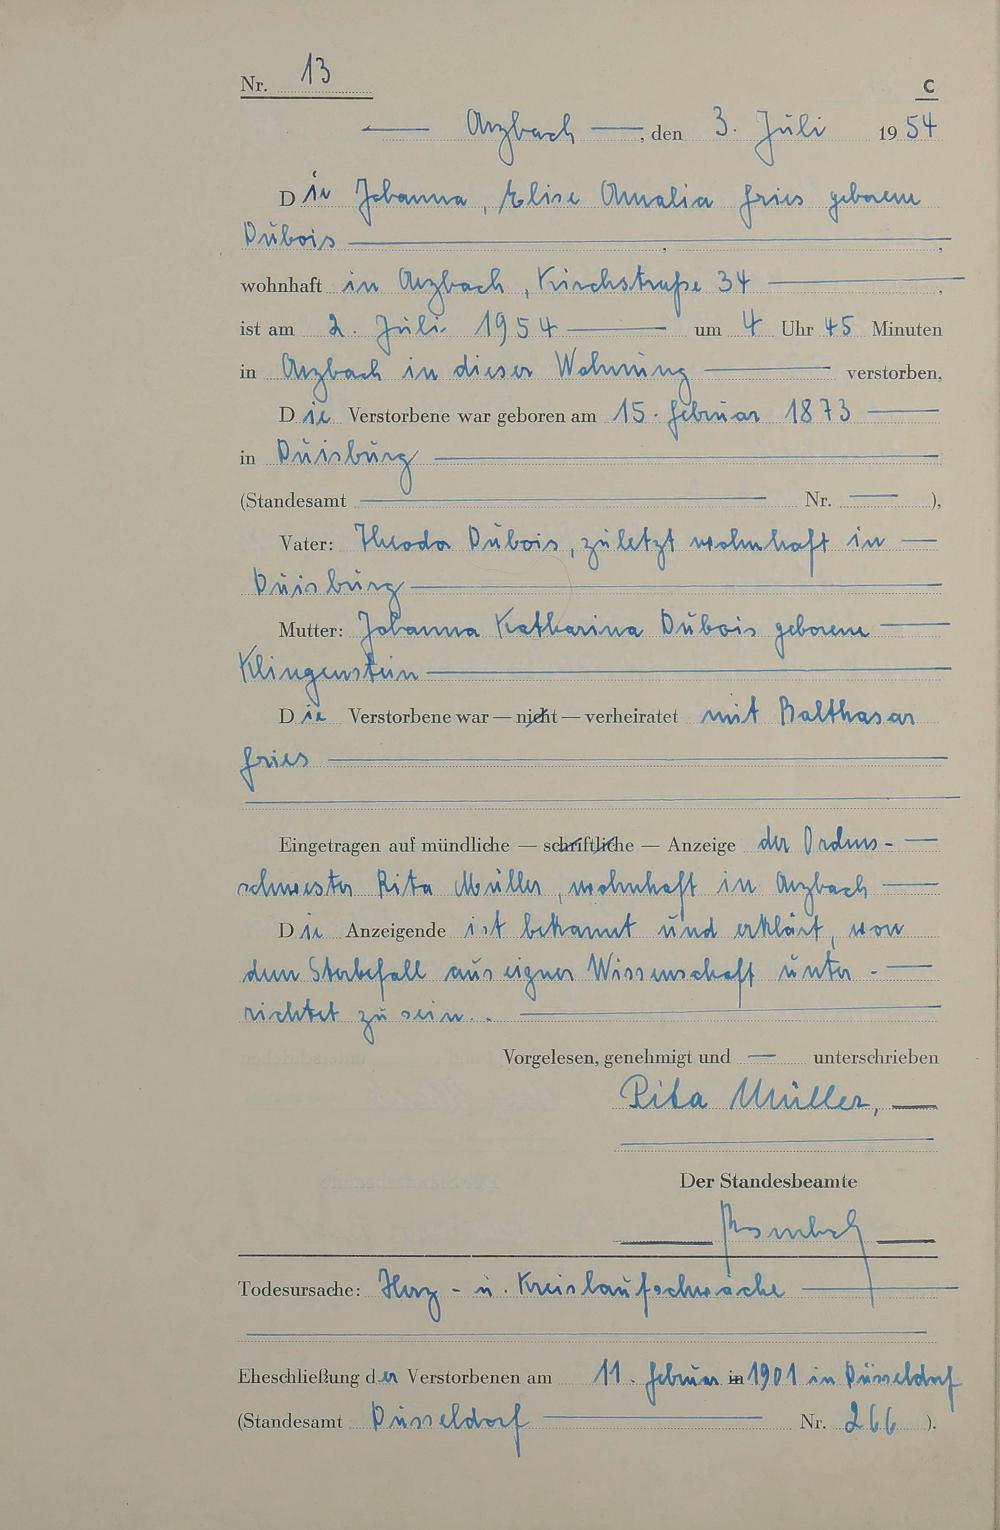 Nr. 13 C
Arzbach, den 3. Juli 1954
Die Johanna, Elise Amalia Fries geborene
Dubois,
wohnhaft in Arzbach, Kirchstraße 34,
ist am 2. Juli 1954 um 4 Uhr 45 Minuten
in Arzbach in dieser Wohnung verstorben.
Die Verstorbene war geboren am 15. Februar 1873
in Duisburg
(Standesamt — Nr. — ),
Vater: Theodor Dubois, zuletzt wohnhaft in
Duisburg
Mutter: Johanna Katharina Dubois geborene
Klingenstein
Die Verstorbene war — nicht — verheiratet mit Balthasar
Fries
Eingetragen auf mündliche — schriftliche — Anzeige der Ordens-
schwester Rita Müller, wohnhaft in Arzbach
Die Anzeigende ist bekannt und erklärt, von
dem Sterbefall aus eigner Wissenschaft unter-
richtet zu sein.
Vorgelesen, genehmigt und — unterschrieben
Rita Müller,
Der Standesbeamte
Todesursache: Herz- u. Kreislaufschwäche
Eheschließung der Verstorbenen am 11. Februar in 1901 in Düsseldorf
(Standesamt Düsseldorf Nr. 266 ).